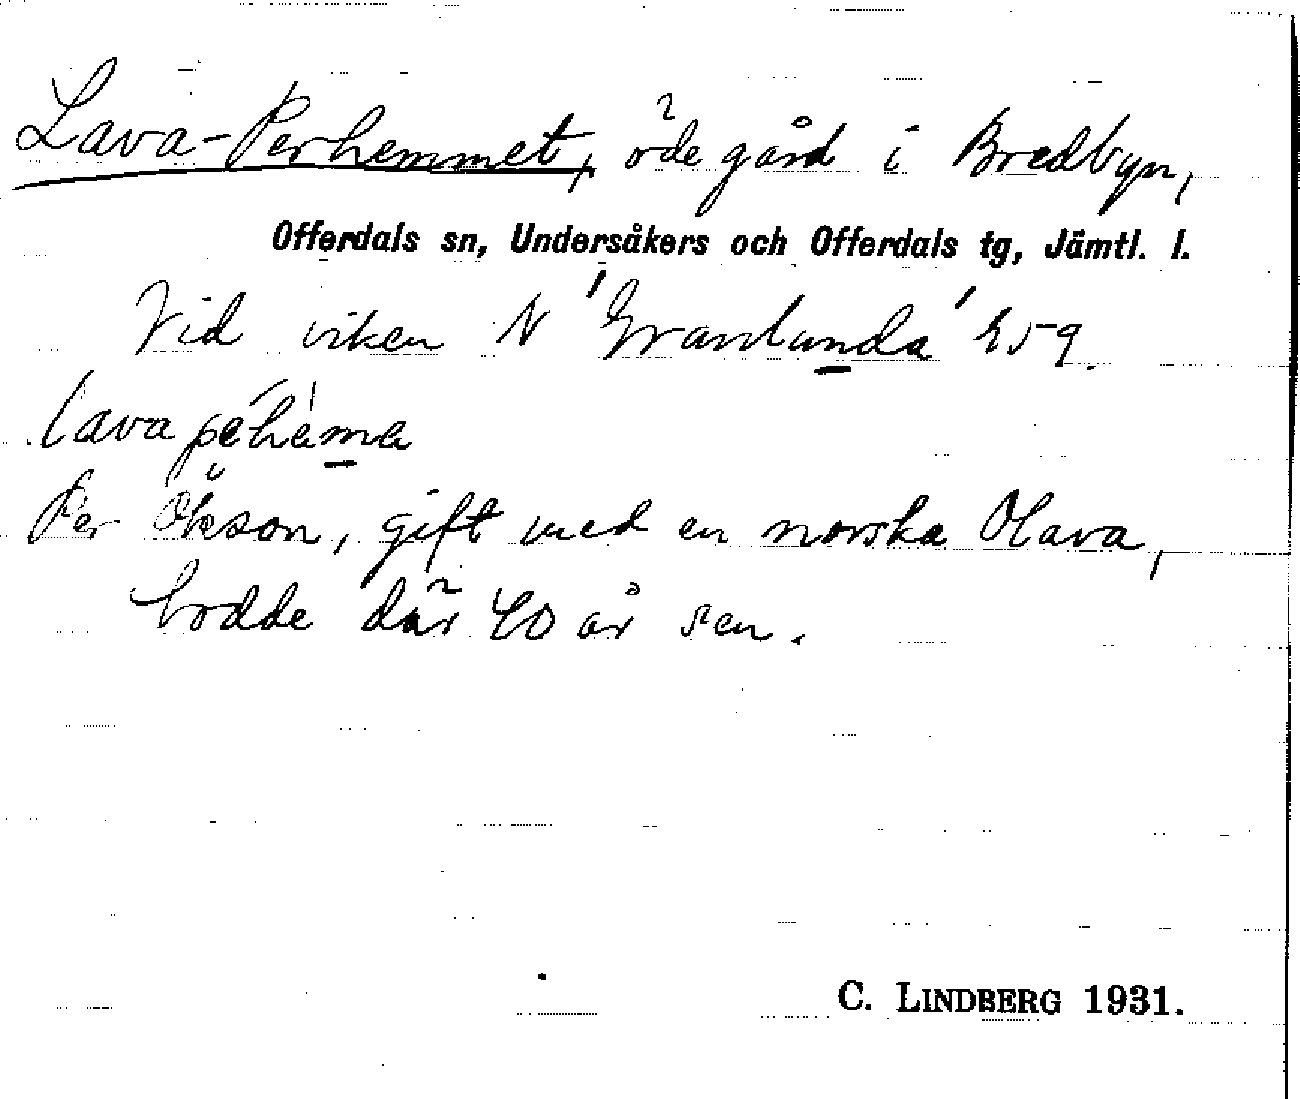 Lava-Perhemmet, öde gård i Bredbyn,
Offerdals sn, Undersåkers och Offerdals tg, Jämtl. l.
Vid viken N 'Granlunda' E59.
lava péhàma
Per Ökson, gift med en norska Olava,
bodde där 40 år sen.
C. LINDBERG 1931.